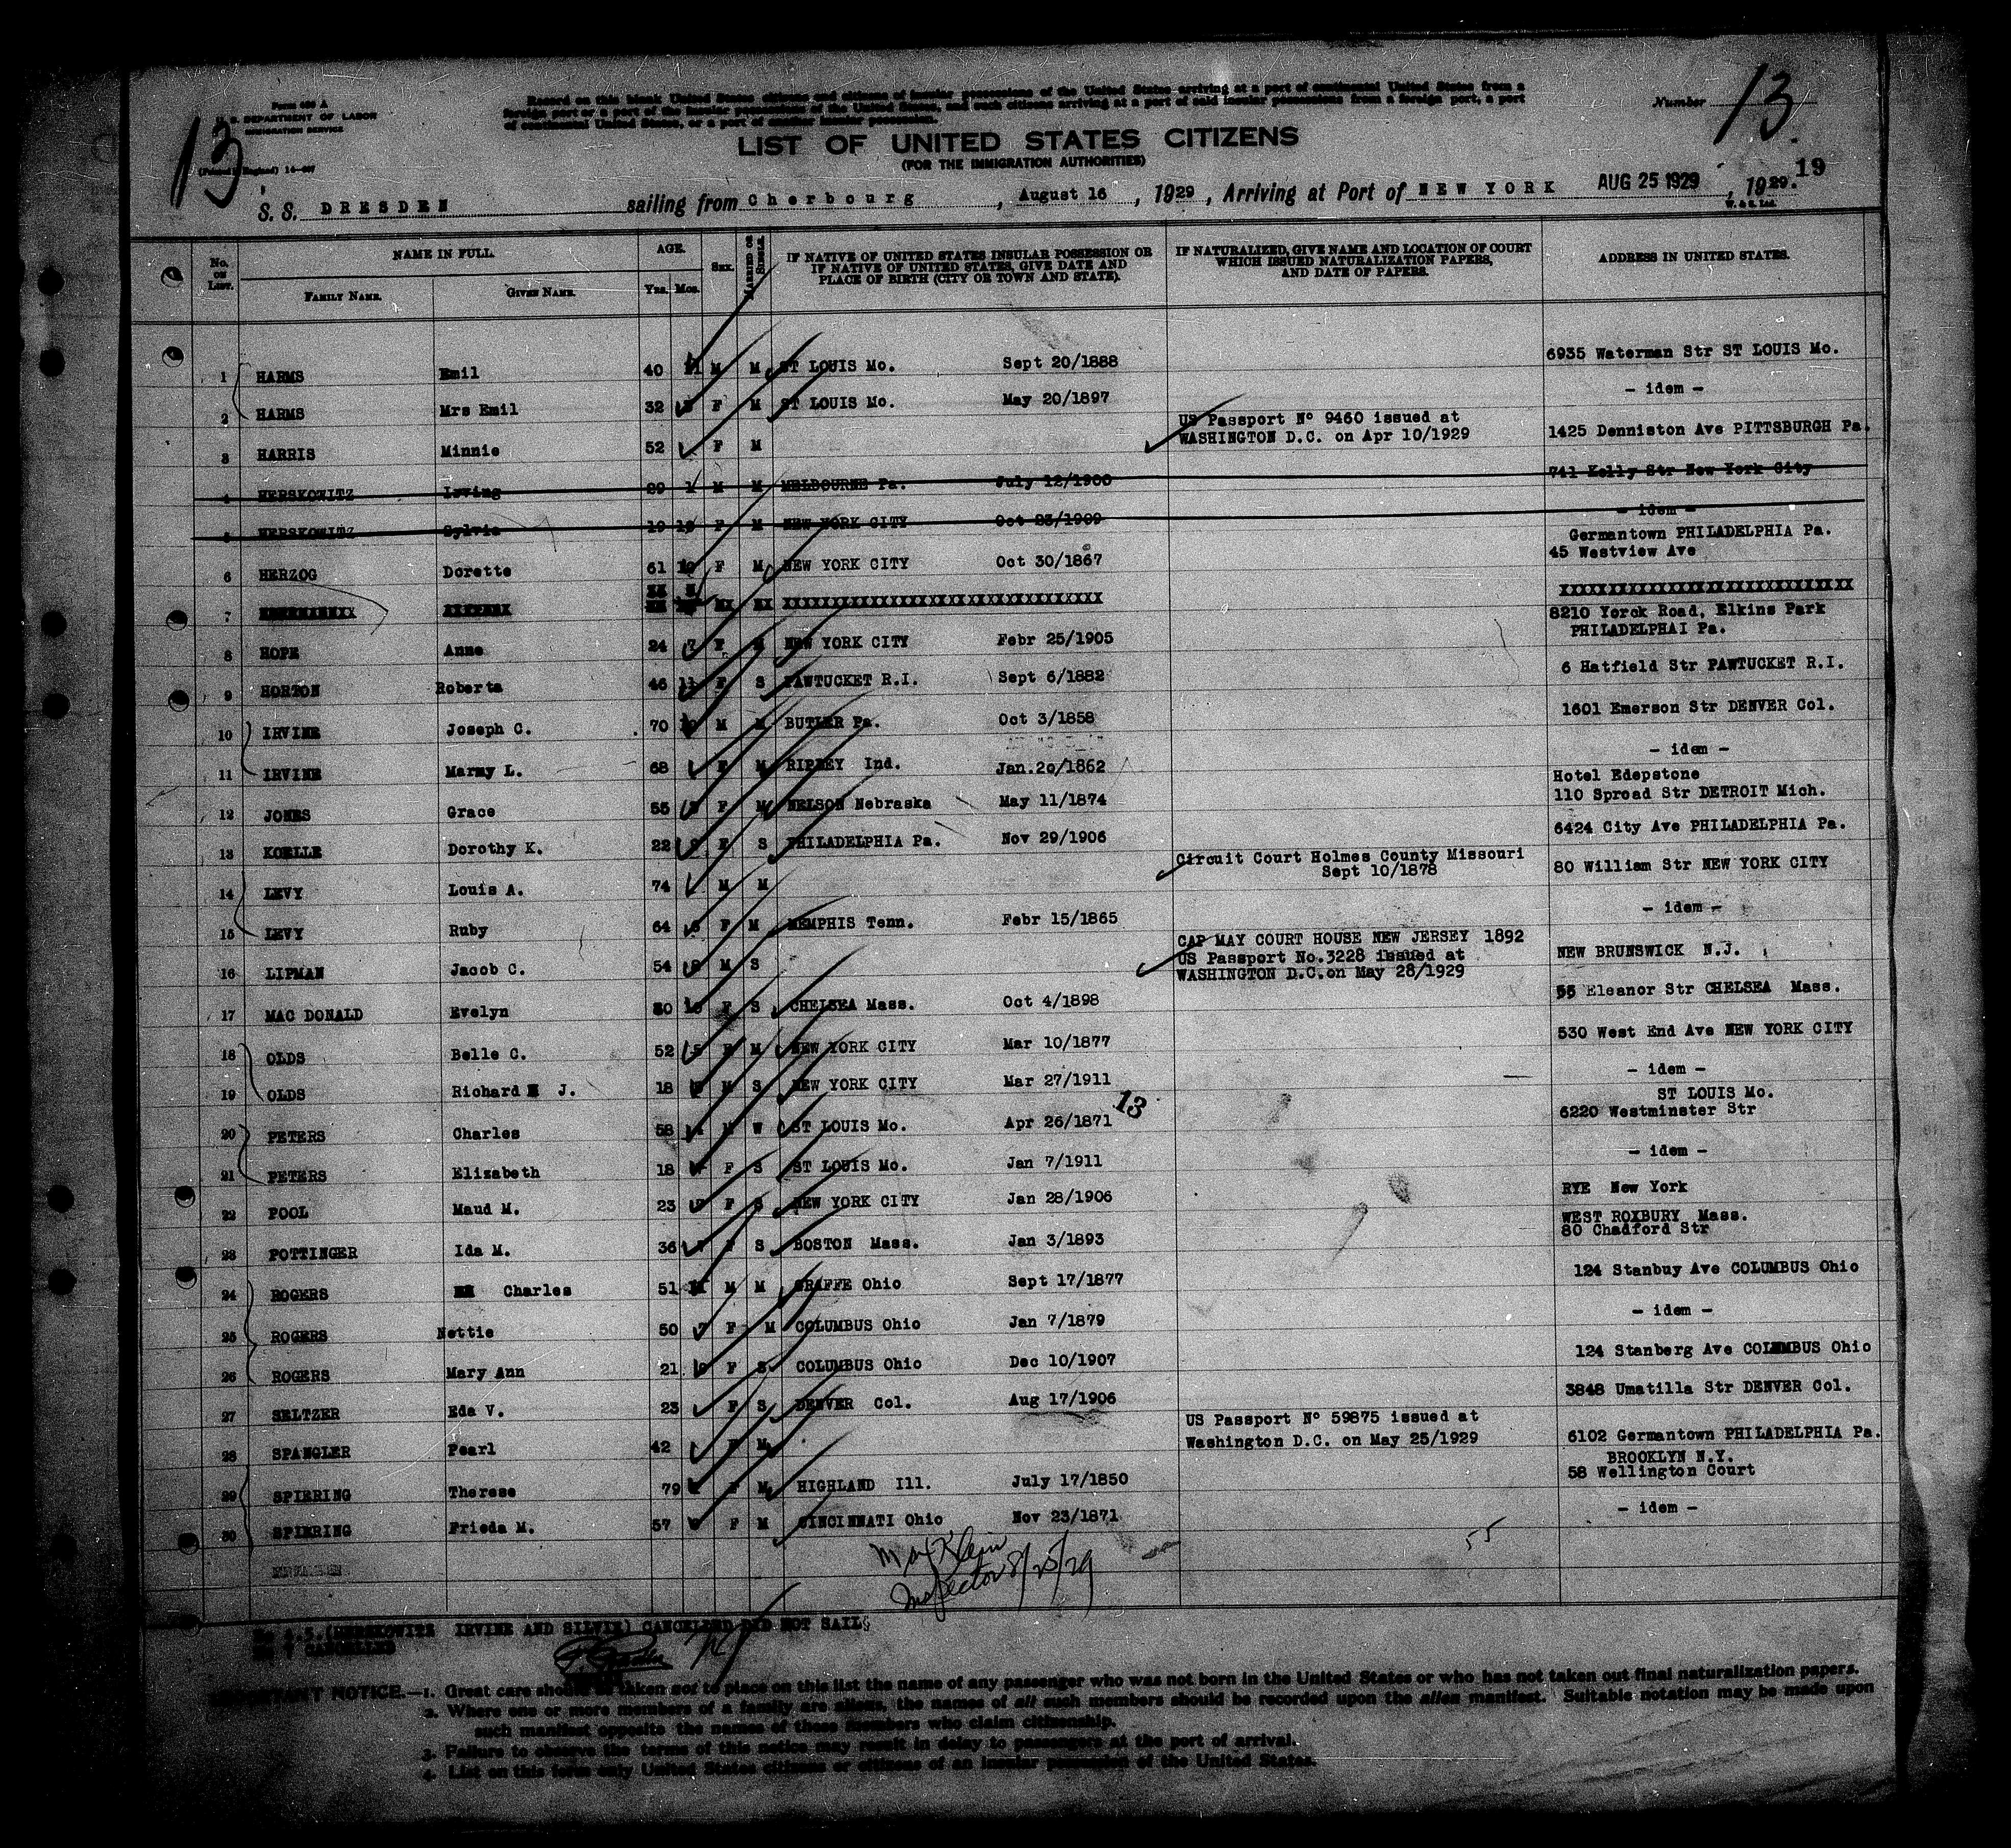 Form 630 A
U. S. DEPARTMENT OF LABOR
IMMIGRATION SERVICE
13
Record on this blank United States citizens and citizens of insular possessions of the United States arriving at a port of continental United States from a
foreign port or a port of the insular possessions of the United States, and such citizens arriving at a port of said insular possessions from a foreign port, a port
of continental United States, or a port of another insular possession.
Number 13
LIST OF UNITED STATES CITIZENS
(FOR THE IMMIGRATION AUTHORITIES)
S. S. DRESDEN sailing from Cherbourg, August 16, 1929, Arriving at Port of NEW YORK AUG 25 1929, 1929. 19
W. & S. Ltd.
No. ON LIST. NAME IN FULL. AGE. SEX. MARRIED OR SINGLE. IF NATIVE OF UNITED STATES INSULAR POSSESSION OR IF NATIVE OF UNITED STATES, GIVE DATE AND PLACE OF BIRTH (CITY OR TOWN AND STATE). IF NATURALIZED, GIVE NAME AND LOCATION OF COURT WHICH ISSUED NATURALIZATION PAPERS, AND DATE OF PAPERS. ADDRESS IN UNITED STATES.
FAMILY NAME. GIVEN NAME. YRS. MOS.
1 HARMS Emil 40 11 M M ST LOUIS Mo. Sept 20/1888 6935 Waterman Str ST LOUIS Mo.
2 HARMS Mrs Emil 32 F M ST LOUIS Mo. May 20/1897 - idem -
3 HARRIS Minnie 52 F M US Passport Nº 9460 issued at WASHINGTON D.C. on Apr 10/1929 1425 Denniston Ave PITTSBURGH Pa.
4 HERSKOWITZ Irving 29 1 M M MELBOURNE Pa. July 12/1900 741 Kelly Str New York City
5 HERSKOWITZ Sylvia 19 10 F M NEW YORK CITY Oct 23/1909 - idem -
6 HERZOG Dorette 61 10 F M NEW YORK CITY Oct 30/1867 Germantown PHILADELPHIA Pa. 45 Westview Ave
7 XXXXXXXXXXXXXXXXXXXXXXXXXXXXXXX XXXXXXXXXXXXXXXXXXXXXXXXXXXX
8 HOPE Anne 24 F NEW YORK CITY Febr 25/1905 8210 Yorck Road, Elkins Park PHILADELPHAI Pa.
9 HORTON Roberta 46 11 F S PAWTUCKET R.I. Sept 6/1882 6 Hatfield Str PAWTUCKET R.I.
10 IRVINE Joseph C. 70 10 M M BUTLER Pa. Oct 3/1858 1601 Emerson Str DENVER Col.
11 IRVINE Marmy L. 68 F M RIPLEY Ind. Jan.20/1862 - idem -
12 JONES Grace 55 F M NELSON Nebraska May 11/1874 Hotel Edepstone 110 Sproad Str DETROIT Mich.
13 KOELLE Dorothy K. 22 F S PHILADELPHIA Pa. Nov 29/1906 6424 City Ave PHILADELPHIA Pa.
14 LEVY Louis A. 74 M M Circuit Court Holmes County Missouri Sept 10/1878 80 William Str NEW YORK CITY
15 LEVY Ruby 64 F M MEMPHIS Tenn. Febr 15/1865 - idem -
16 LIPMAN Jacob C. 54 M S CAP MAY COURT HOUSE NEW JERSEY 1892 US Passport No.3228 issued at WASHINGTON D.C.on May 28/1929 NEW BRUNSWICK N.J.
17 MAC DONALD Evelyn 30 10 F S CHELSEA Mass. Oct 4/1898 55 Eleanor Str CHELSEA Mass.
18 OLDS Belle C. 52 5 F M NEW YORK CITY Mar 10/1877 530 West End Ave NEW YORK CITY
19 OLDS Richard J. 18 M S NEW YORK CITY Mar 27/1911 - idem -
13
20 PETERS Charles 58 M W ST LOUIS Mo. Apr 26/1871 ST LOUIS Mo. 6220 Westminster Str
21 PETERS Elizabeth 18 F S ST LOUIS Mo. Jan 7/1911 - idem -
22 POOL Maud M. 23 F S NEW YORK CITY Jan 28/1906 RYE New York
23 POTTINGER Ida M. 36 F S BOSTON Mass. Jan 3/1893 WEST ROXBURY Mass. 80 Chadford Str
24 ROGERS Charles 51 11 M M GRAFFE Ohio Sept 17/1877 124 Stanbuy Ave COLUMBUS Ohio
25 ROGERS Nettie 50 7 F M COLUMBUS Ohio Jan 7/1879 - idem -
26 ROGERS Mary Ann 21 F S COLUMBUS Ohio Dec 10/1907 124 Stanberg Ave COLUMBUS Ohio
27 SELTZER Eda V. 23 F S DENVER Col. Aug 17/1906 3848 Umatilla Str DENVER Col.
28 SPANGLER Pearl 42 F M US Passport Nº 59875 issued at Washington D.C. on May 25/1929 6102 Germantown PHILADELPHIA Pa.
29 SPIERING Therese 79 F M HIGHLAND Ill. July 17/1850 BROOKLYN N.Y. 58 Wellington Court
30 SPIERING Frieda M. 57 F M CINCINNATI Ohio Nov 23/1871 - idem -
55
Max Klein
Inspector 8/25/29
No 4.5.(HERSKOWITZ IRVINE AND SILVIE) CANCELLED DID NOT SAIL
No 7 CANCELLED
IMPORTANT NOTICE.—1. Great care should be taken not to place on this list the name of any passenger who was not born in the United States or who has not taken out final naturalization papers.
2. Where one or more members of a family are aliens, the names of all such members should be recorded upon the alien manifest. Suitable notation may be made upon
such manifest opposite the names of those members who claim citizenship.
3. Failure to observe the terms of this notice may result in delay to passengers at the port of arrival.
4. List on this form only United States citizens or citizens of an insular possession of the United States.